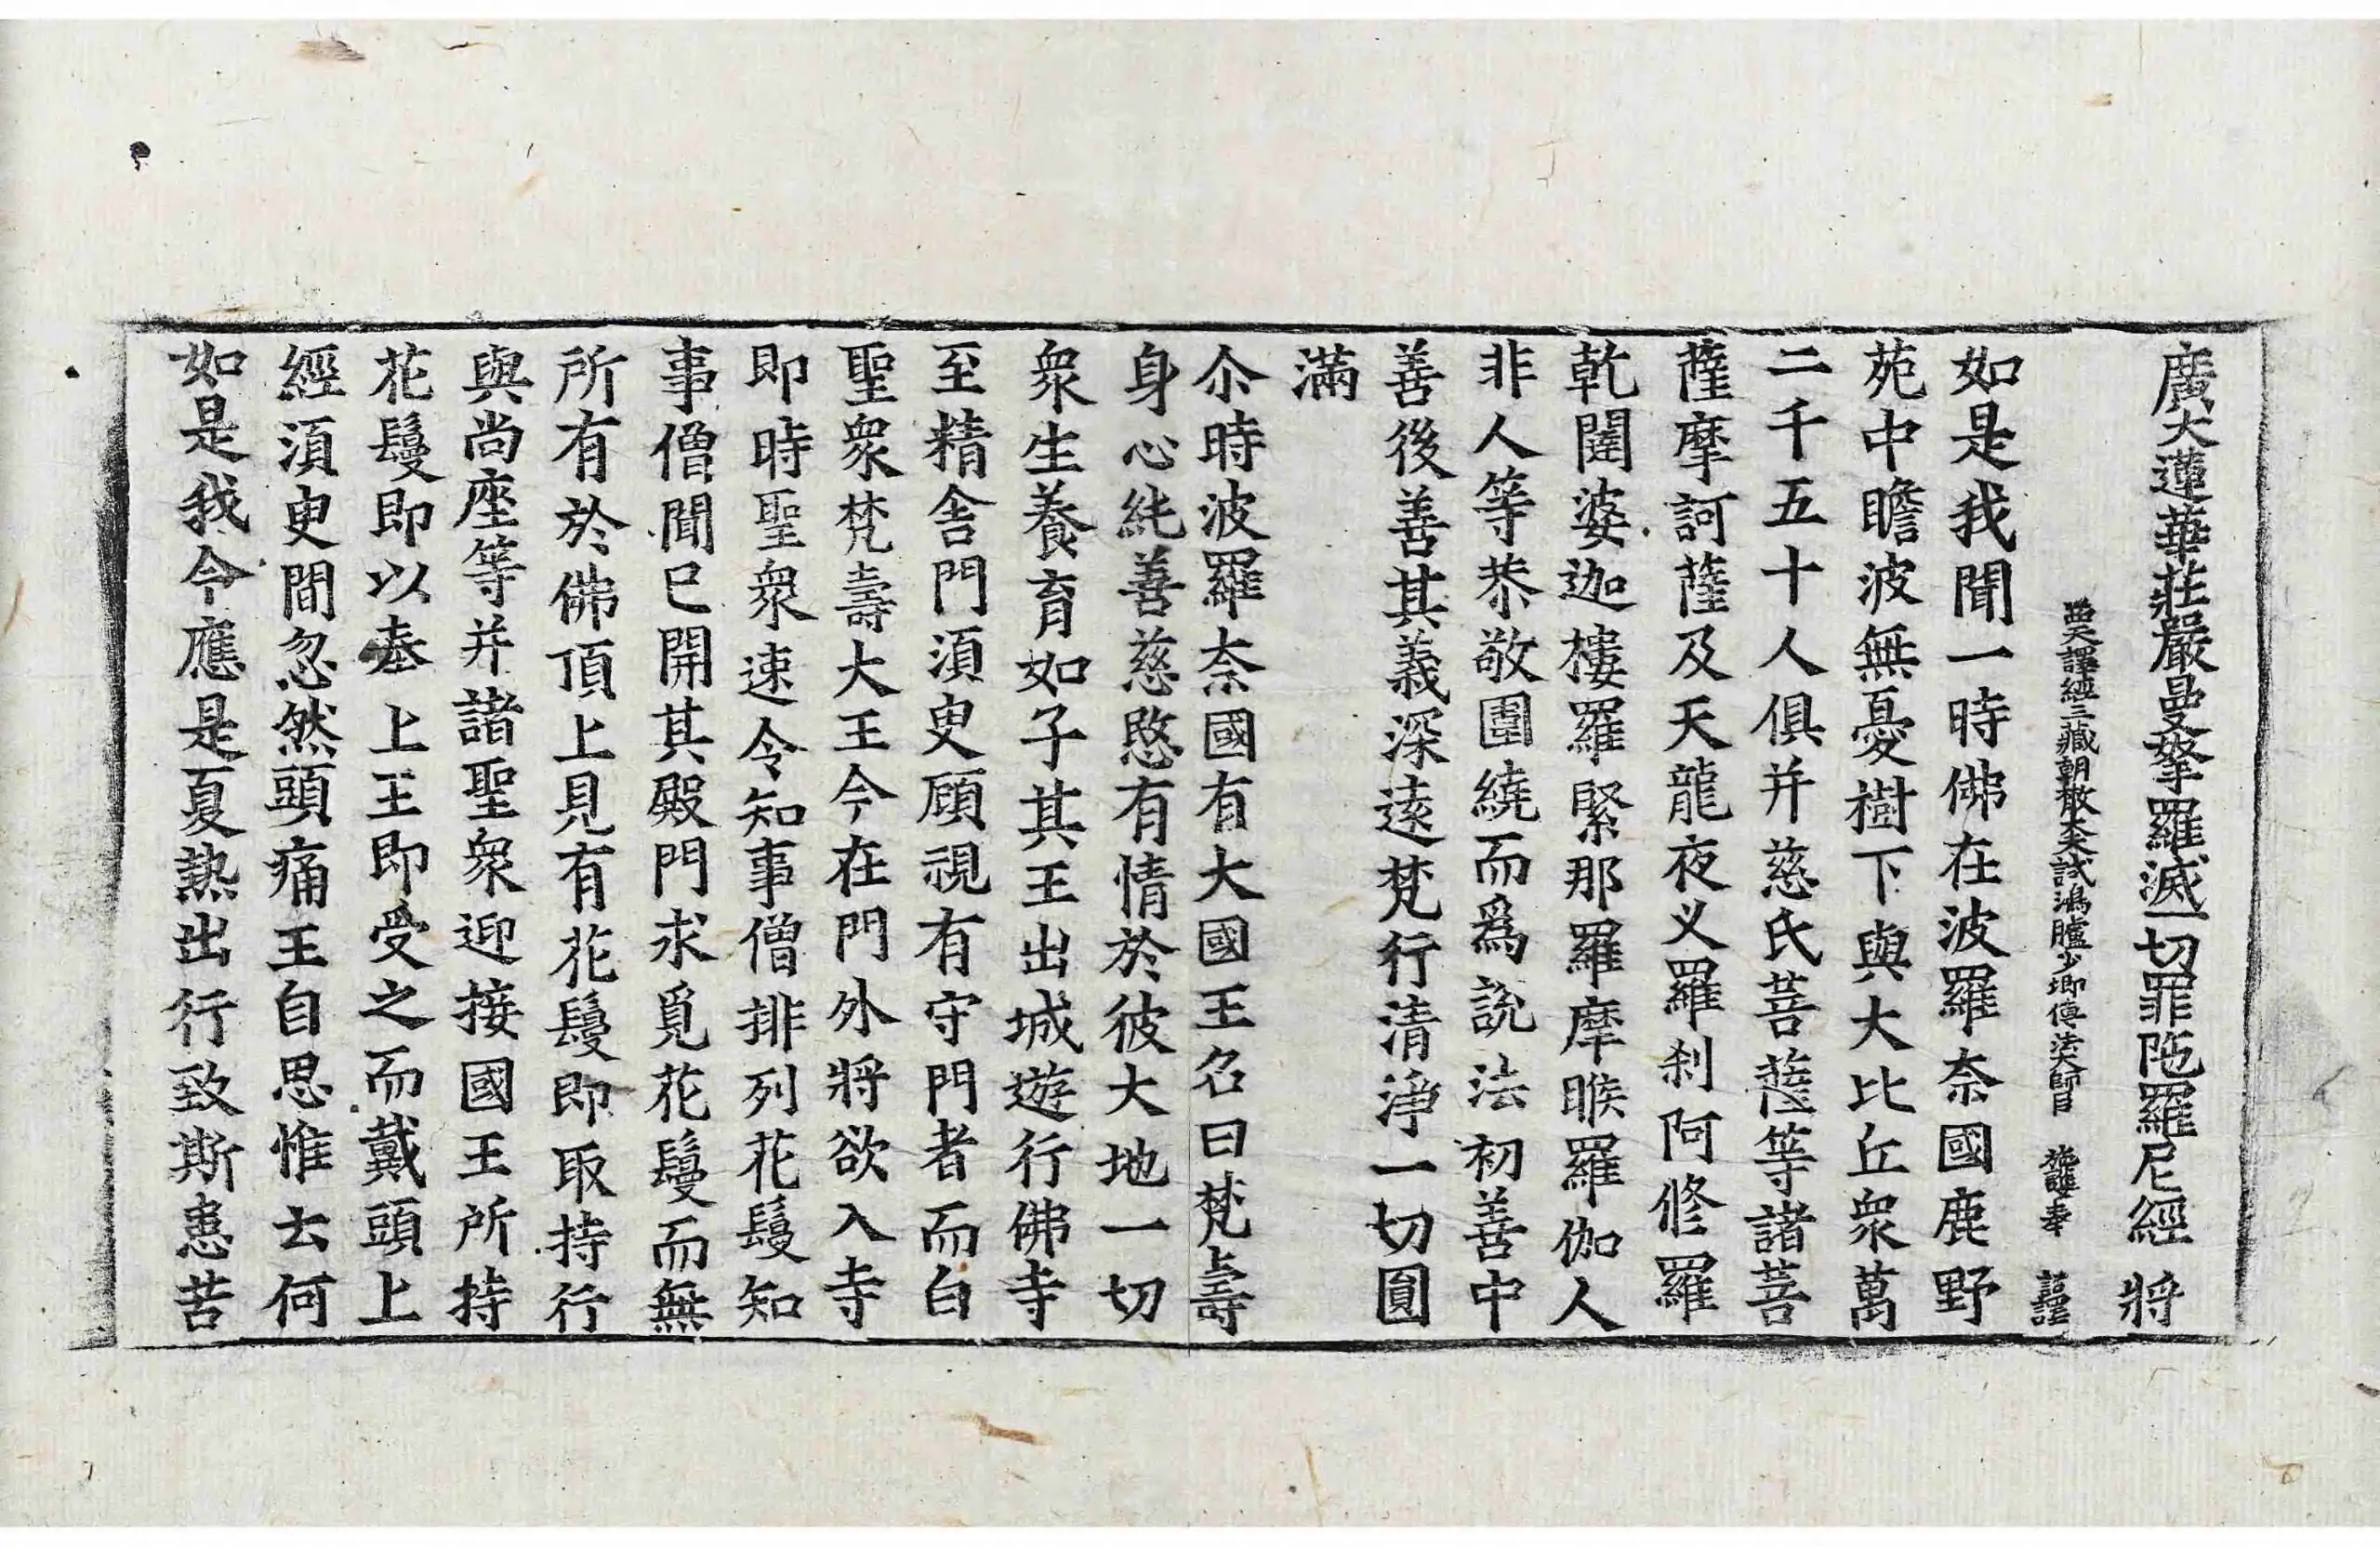 廣大蓮華莊嚴曼拏羅滅一切罪陁羅尼經 將
西天譯經三藏朝散大夫試鴻臚少卿傳法大師臣 施護奉 詔譯
如是我聞一時佛在波羅奈國鹿野
苑中瞻波無憂樹下與大比丘衆萬
二千五十人俱并慈氏菩薩等諸菩
薩摩訶薩及天龍夜义羅刹阿修羅
乾闥婆迦樓羅緊那羅摩睺羅伽人
非人等恭敬圍繞而爲說法初善中
善後善其義深遠梵行清淨一切圓
滿
尒時波羅奈國有大國王名曰梵壽
身心純善慈愍有情於彼大地一切
衆生養育如子其王出城遊行佛寺
至精舍門須臾顧視有守門者而白
聖衆梵壽大王今在門外將欲入寺
即時聖衆速令知事僧排列花鬘知
事僧聞已開其殿門求覓花鬘而無
所有於佛頂上見有花鬘即取持行
與尚座等并諸聖衆迎接國王所持
花鬘即以奉上王即受之而戴頭上
經須臾間忽然頭痛王自思惟去何
如是我今應是夏熱出行致斯患苦